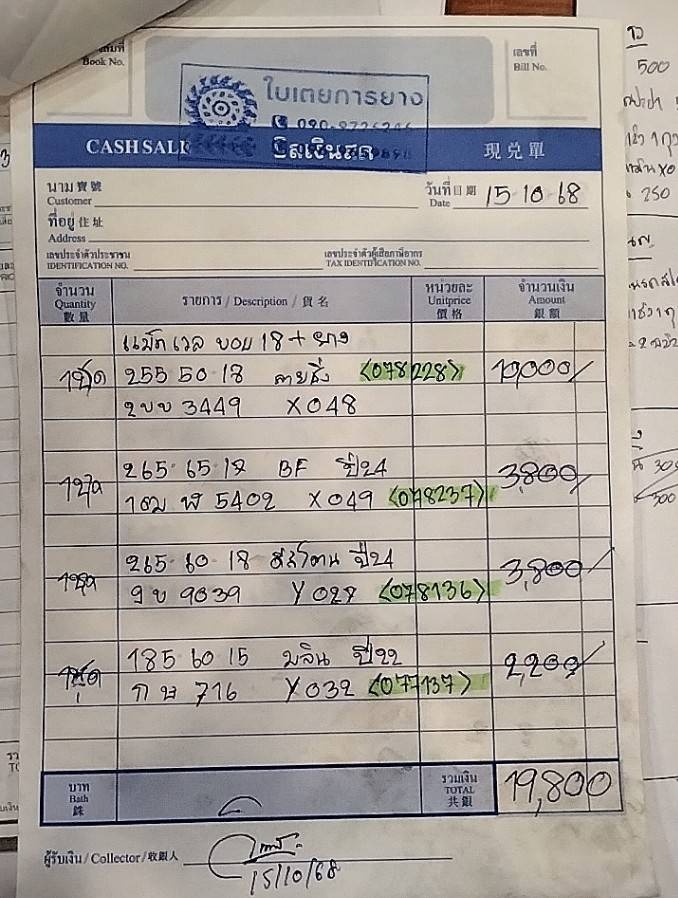 เล่มที่
Book No.
เลขที่
Bill No.
ใบเตยการยาง
090-8726246
CASH SALE
บิลเงินสด
現兑單
นาม 寳號
Customer
วันที่ 日期
Date 15-10-68
ที่อยู่ 住址
Address
เลขประจำตัวประชาชน
IDENTIFICATION NO.
เลขประจำตัวผู้เสียภาษีอากร
TAX IDENTIFICATION NO.
จำนวน
Quantity
數量
รายการ / Description / 貨名
หน่วยละ
Unitprice
價格
จำนวนเงิน
Amount
銀額
แม็ก เวล ขอบ 18 + ยาง
1ชุด 255 50 18 <078228> 10,000/
2ขบ 3449 X048
265-65-18 BF ปี24
3,800/
5402 X049 <078237>
265-60-18 ปี24
3,800/
9ข 9039 Y028 <078136>
185 60 15 ปี22
2,200/
716 Y032 <077137>
บาท
Bath
銖
รวมเงิน
TOTAL
共銀
19,800
ผู้รับเงิน / Collector / 收銀人
15/10/68
500
250